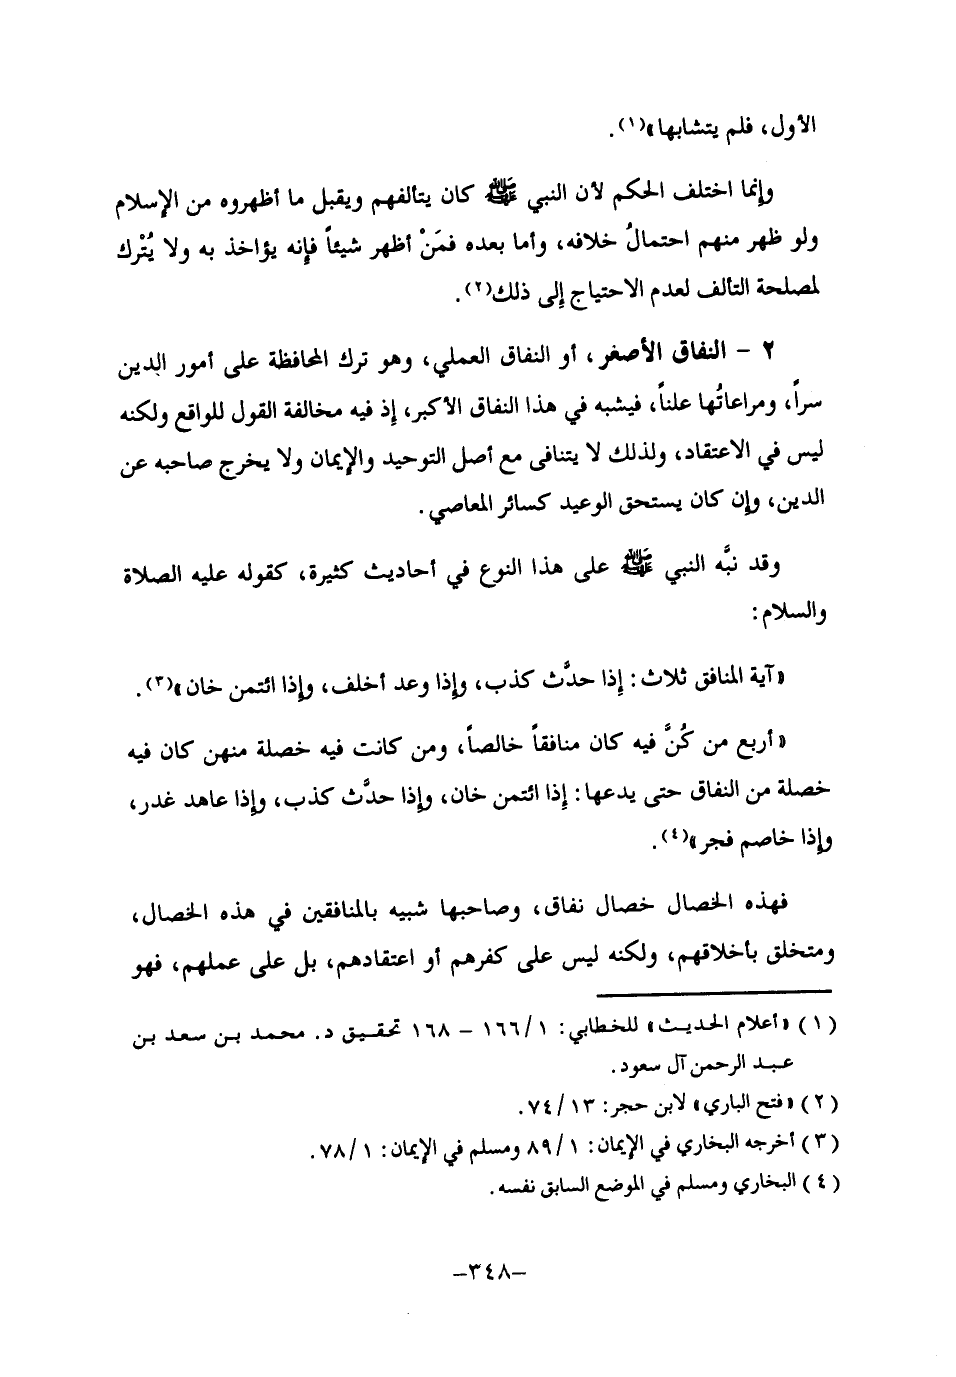 الأول، فلم يتشابها»(١).
وإنما اختلف الحكم لأن النبي ﷺ كان يتألفهم ويقبل ما أظهروه من الإسلام
ولو ظهر منهم احتمالُ خلافه، وأما بعده فمَنْ أظهر شيئاً فإنه يؤاخذ به ولا يُتْرك
لمصلحة التألف لعدم الاحتياج إلى ذلك(٢).
٢ - النفاق الأصغر، أو النفاق العملي، وهو ترك المحافظة على أمور الدين
سراً، ومراعاتُها علناً، فيشبه في هذا النفاق الأكبر، إذ فيه مخالفة القول للواقع ولكنه
ليس في الاعتقاد، ولذلك لا يتنافى مع أصل التوحيد والإيمان ولا يخرج صاحبه عن
الدين، وإن كان يستحق الوعيد كسائر المعاصي.
وقد نبَّه النبي ﷺ على هذا النوع في أحاديث كثيرة، كقوله عليه الصلاة
والسلام:
«آية المنافق ثلاث: إذا حدَّث كذب، وإذا وعد أخلف، وإذا ائتمن خان»(٣).
«أربع من كُنَّ فيه كان منافقاً خالصاً، ومن كانت فيه خصلة منهن كان فيه
خصلة من النفاق حتى يدعها: إذا ائتمن خان، وإذا حدَّث كذب، وإذا عاهد غدر،
وإذا خاصم فجر»(٤).
فهذه الخصال خصال نفاق، وصاحبها شبيه بالمنافقين في هذه الخصال،
ومتخلق بأخلاقهم، ولكنه ليس على كفرهم أو اعتقادهم، بل على عملهم، فهو
(١) «أعلام الحديث» للخطابي: ١/١٦٦ - ١٦٨ تحقيق د. محمد بن سعد بن
عبد الرحمن آل سعود.
(٢) «فتح الباري» لابن حجر: ١٣/٧٤.
(٣) أخرجه البخاري في الإيمان: ١/٨٩ ومسلم في الإيمان: ١/٧٨.
(٤) البخاري ومسلم في الموضع السابق نفسه.
-٣٤٨-